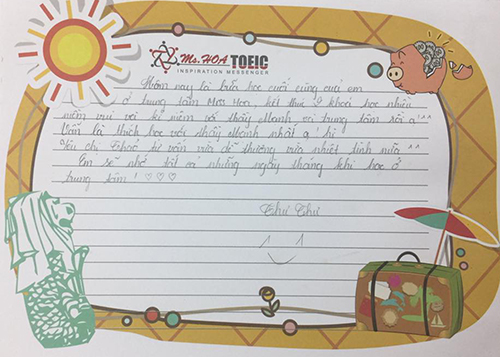 Ms. HOA TOEIC
INSPIRATION MESSENGER
Hôm nay là buổi học cuối cùng của em
ở trung tâm Mrs Hoa, kết thúc 2 khoá học nhiều
niềm vui và kỉ niệm với thầy Mạnh và trung tâm rồi ạ ^^
Vẫn là thích học với thầy Mạnh nhất ạ! hi
Yêu chị Thoa tư vấn vừa dễ thương vừa nhiệt tình nữa ^^
Em sẽ nhớ tất cả những ngày tháng khi học ở
trung tâm! ♡♡♡
Thư Thư